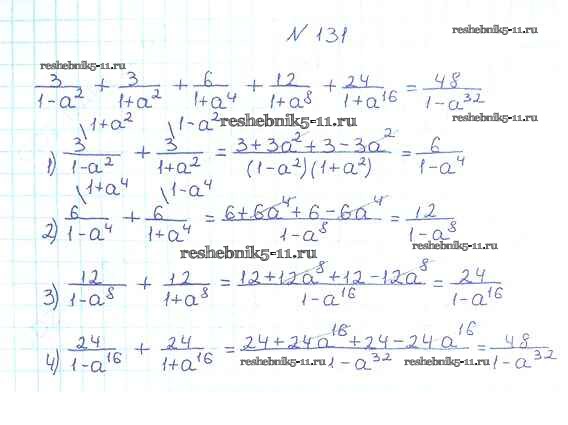 N 131
reshebnik5-11.ru
reshebnik5-11.ru
3/(1-a²) + 3/(1+a²) + 6/(1+a⁴) + 12/(1+a⁸) + 24/(1+a¹⁶) = 48/(1-a³²)
reshebnik5-11.ru
reshebnik5-11.ru
1) 3\1+a²/(1-a²) + 3\1-a²/(1+a²) = (3+3a²+3-3a²)/((1-a²)(1+a²)) = 6/(1-a⁴)
2) 6\1+a⁴/(1-a⁴) + 6\1-a⁴/(1+a⁴) = (6+6a⁴+6-6a⁴)/(1-a⁸) = 12/(1-a⁸)
reshebnik5-11.ru
reshebnik5-11.ru
3) 12/(1-a⁸) + 12/(1+a⁸) = (12+12a⁸+12-12a⁸)/(1-a¹⁶) = 24/(1-a¹⁶)
4) 24/(1-a¹⁶) + 24/(1+a¹⁶) = (24+24a¹⁶+24-24a¹⁶)/(1-a³²) = 48/(1-a³²)
reshebnik5-11.ru
reshebnik5-11.ru